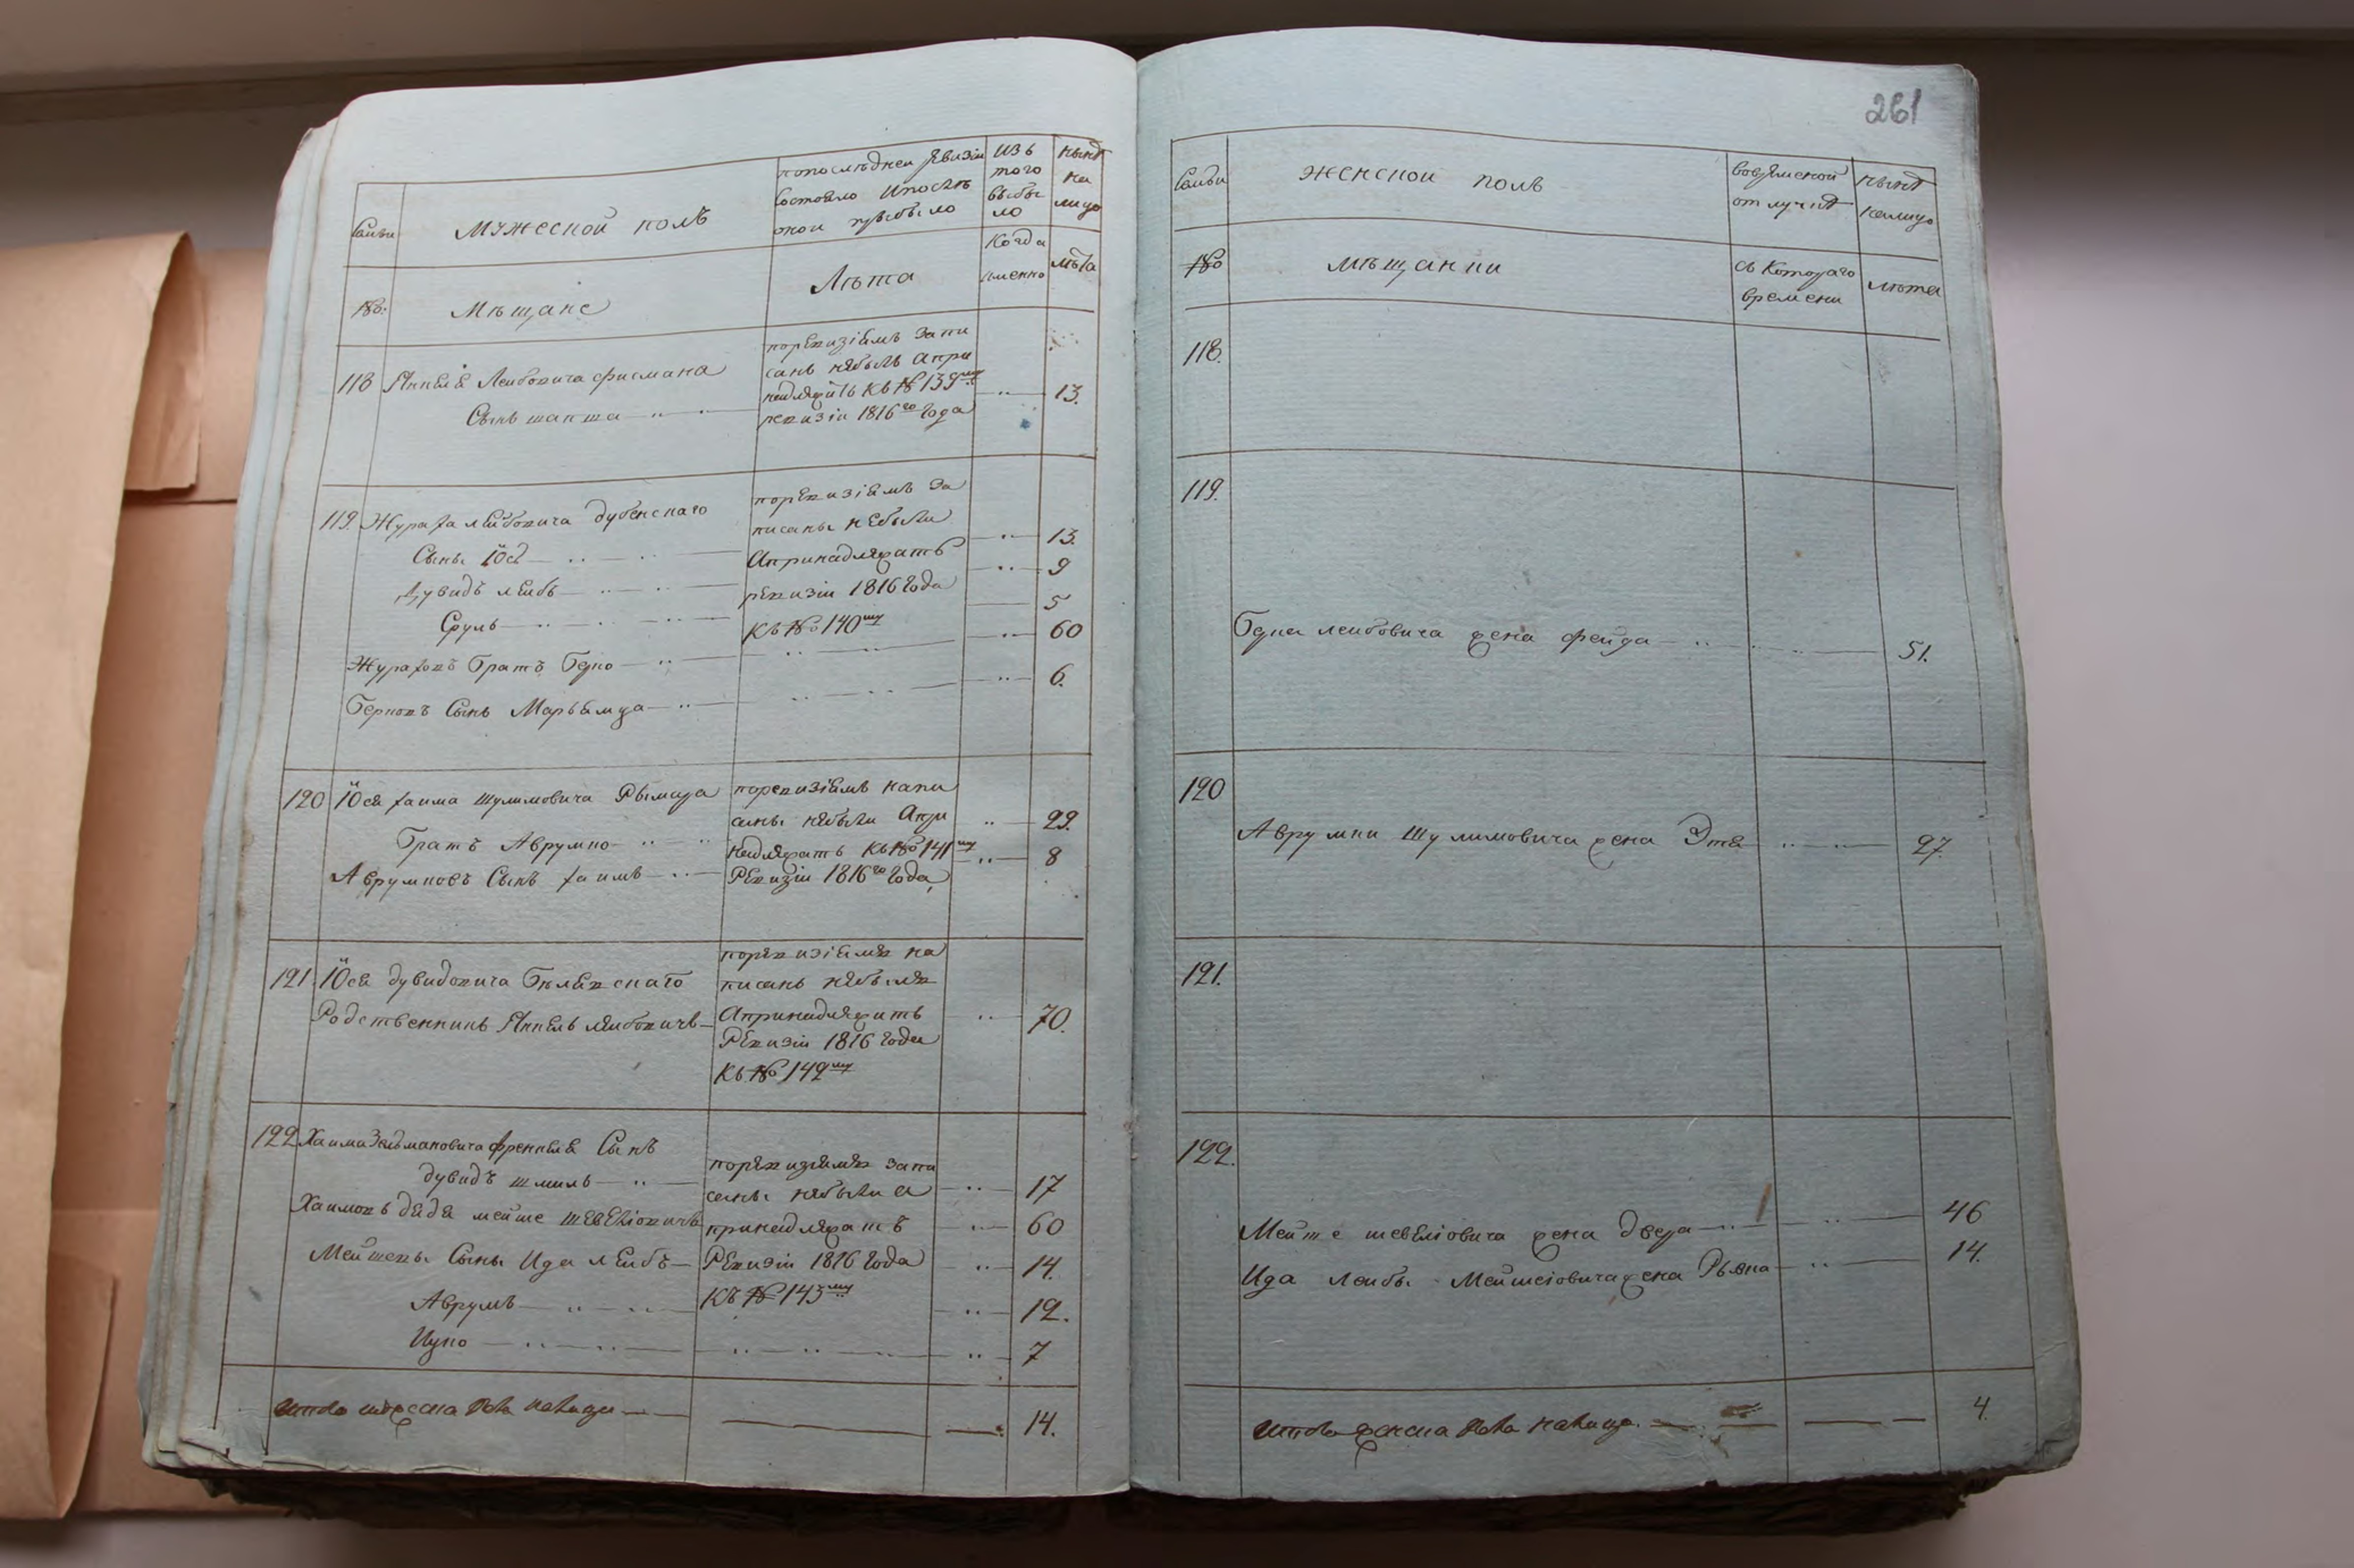 261
Семьи
мужеской полъ
попоследней ревизіи
состояло и после
оной прибыло
изъ
того
выбы
ло
ныне
на
лицо
№о:
Мѣщане
Лѣта
когда
именно
лѣта
118 Янкеля Лейбовича фисмана
Сынъ шапша
поревизіямъ запи
санъ небылъ апри
надлежитъ къ № 139му
ревизіи 1816го года
13.
119 Лейбовича Дубенскаго
Сынъ Іось
Дувидъ лейбъ
Сруль
Братъ
Сынъ
поревизіямъ за
писаны небыли
Апринадлежатъ
ревизіи 1816 года
къ №о 140му
13.
9
5
60
6.
120 Іося хаима Шулимовича
Братъ Аврумко
Аврумковъ Сынъ хаимъ
поревизіямъ напи
саны небыли Апри
надлежатъ къ №о 141му
Ревизіи 1816го года,
29.
8
121. Іося дувидовича
Родственникъ Янкель лейбовичъ
поревизіямъ на
писанъ небылъ
Апринадлежитъ
Ревизіи 1816 года
къ №о 142му
70.
122 Хаима Зельмановича френкеля Сынъ
дувидъ шмиль
Хаимовъ дядя мейше шевеліовичъ
Мейшевы Сыны Ида лейбъ
Аврумъ
Ицко
поревизіямъ запи
саны небыли а
принадлежатъ
Ревизіи 1816 года
къ № 143му
17
60
14.
12.
7
Итого мужеска пола налицо
14.
Семьи
женской полъ
вовременой
отлучке
ныне
налицо
№о
мѣщанки
съ котораго
времени
лѣта
118.
119.
лейбовича жена фейга
51.
120
Аврумки Шулимовича жена Этя
27.
121.
122.
Мейше шевеліовича жена двера
46
Ида лейбы Мейшеіовича жена
14.
Итого женска пола налицо.
4.